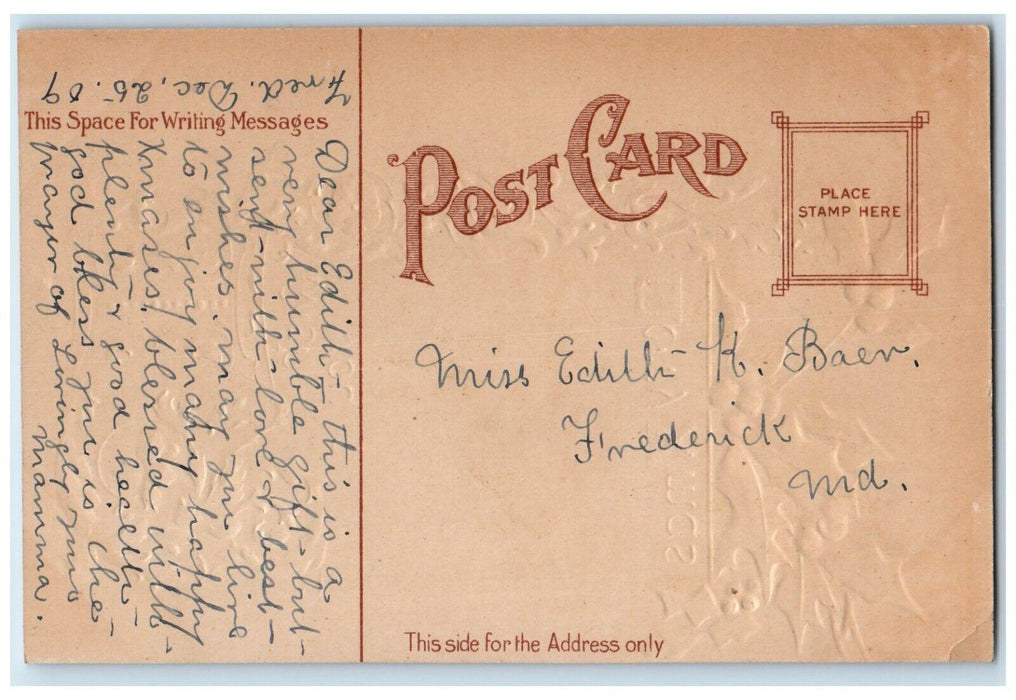 This Space For Writing Messages
Fred. Dec, 25. 09
Dear Edith - this is a
very humble gift - but
sent - with love & best -
wishes, may you live
to enjoy many many happy
Xmases, blessed with -
plenty & good health -
god bless you is the -
prayer of Lovingly yours
Mamma.
POST CARD
PLACE
STAMP HERE
Miss Edith K. Baer.
Frederick
Md.
This side for the Address only